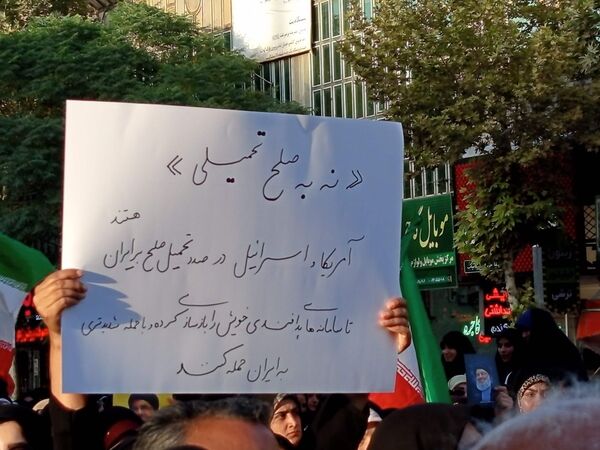 « نه به صلح تحمیلی »
آمریکا و اسرائیل در صدد تحمیل صلح بر ایران هستند
تا سامانه های پدافندی خویش را بازسازی کرده و با حمله شدیدتری
به ایران حمله کنند
موبایل
مرکز پخش موبایل و لوازم